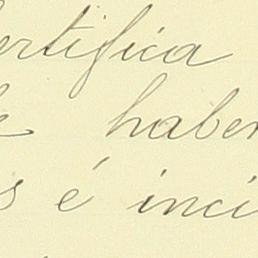 ertifica
e haber
s é inci